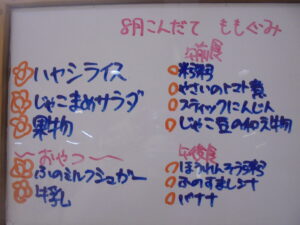 8月こんだて ももぐみ
ハヤシライス
じゃこまめサラダ
果物
〜おやつ〜
ふのミルクシュガー
牛乳
午前食
粉粥
やさいのトマト煮
スティックにんじん
じゃこ豆の和え物
午後食
ほうれんそう粥
ふのすまし汁
バナナ